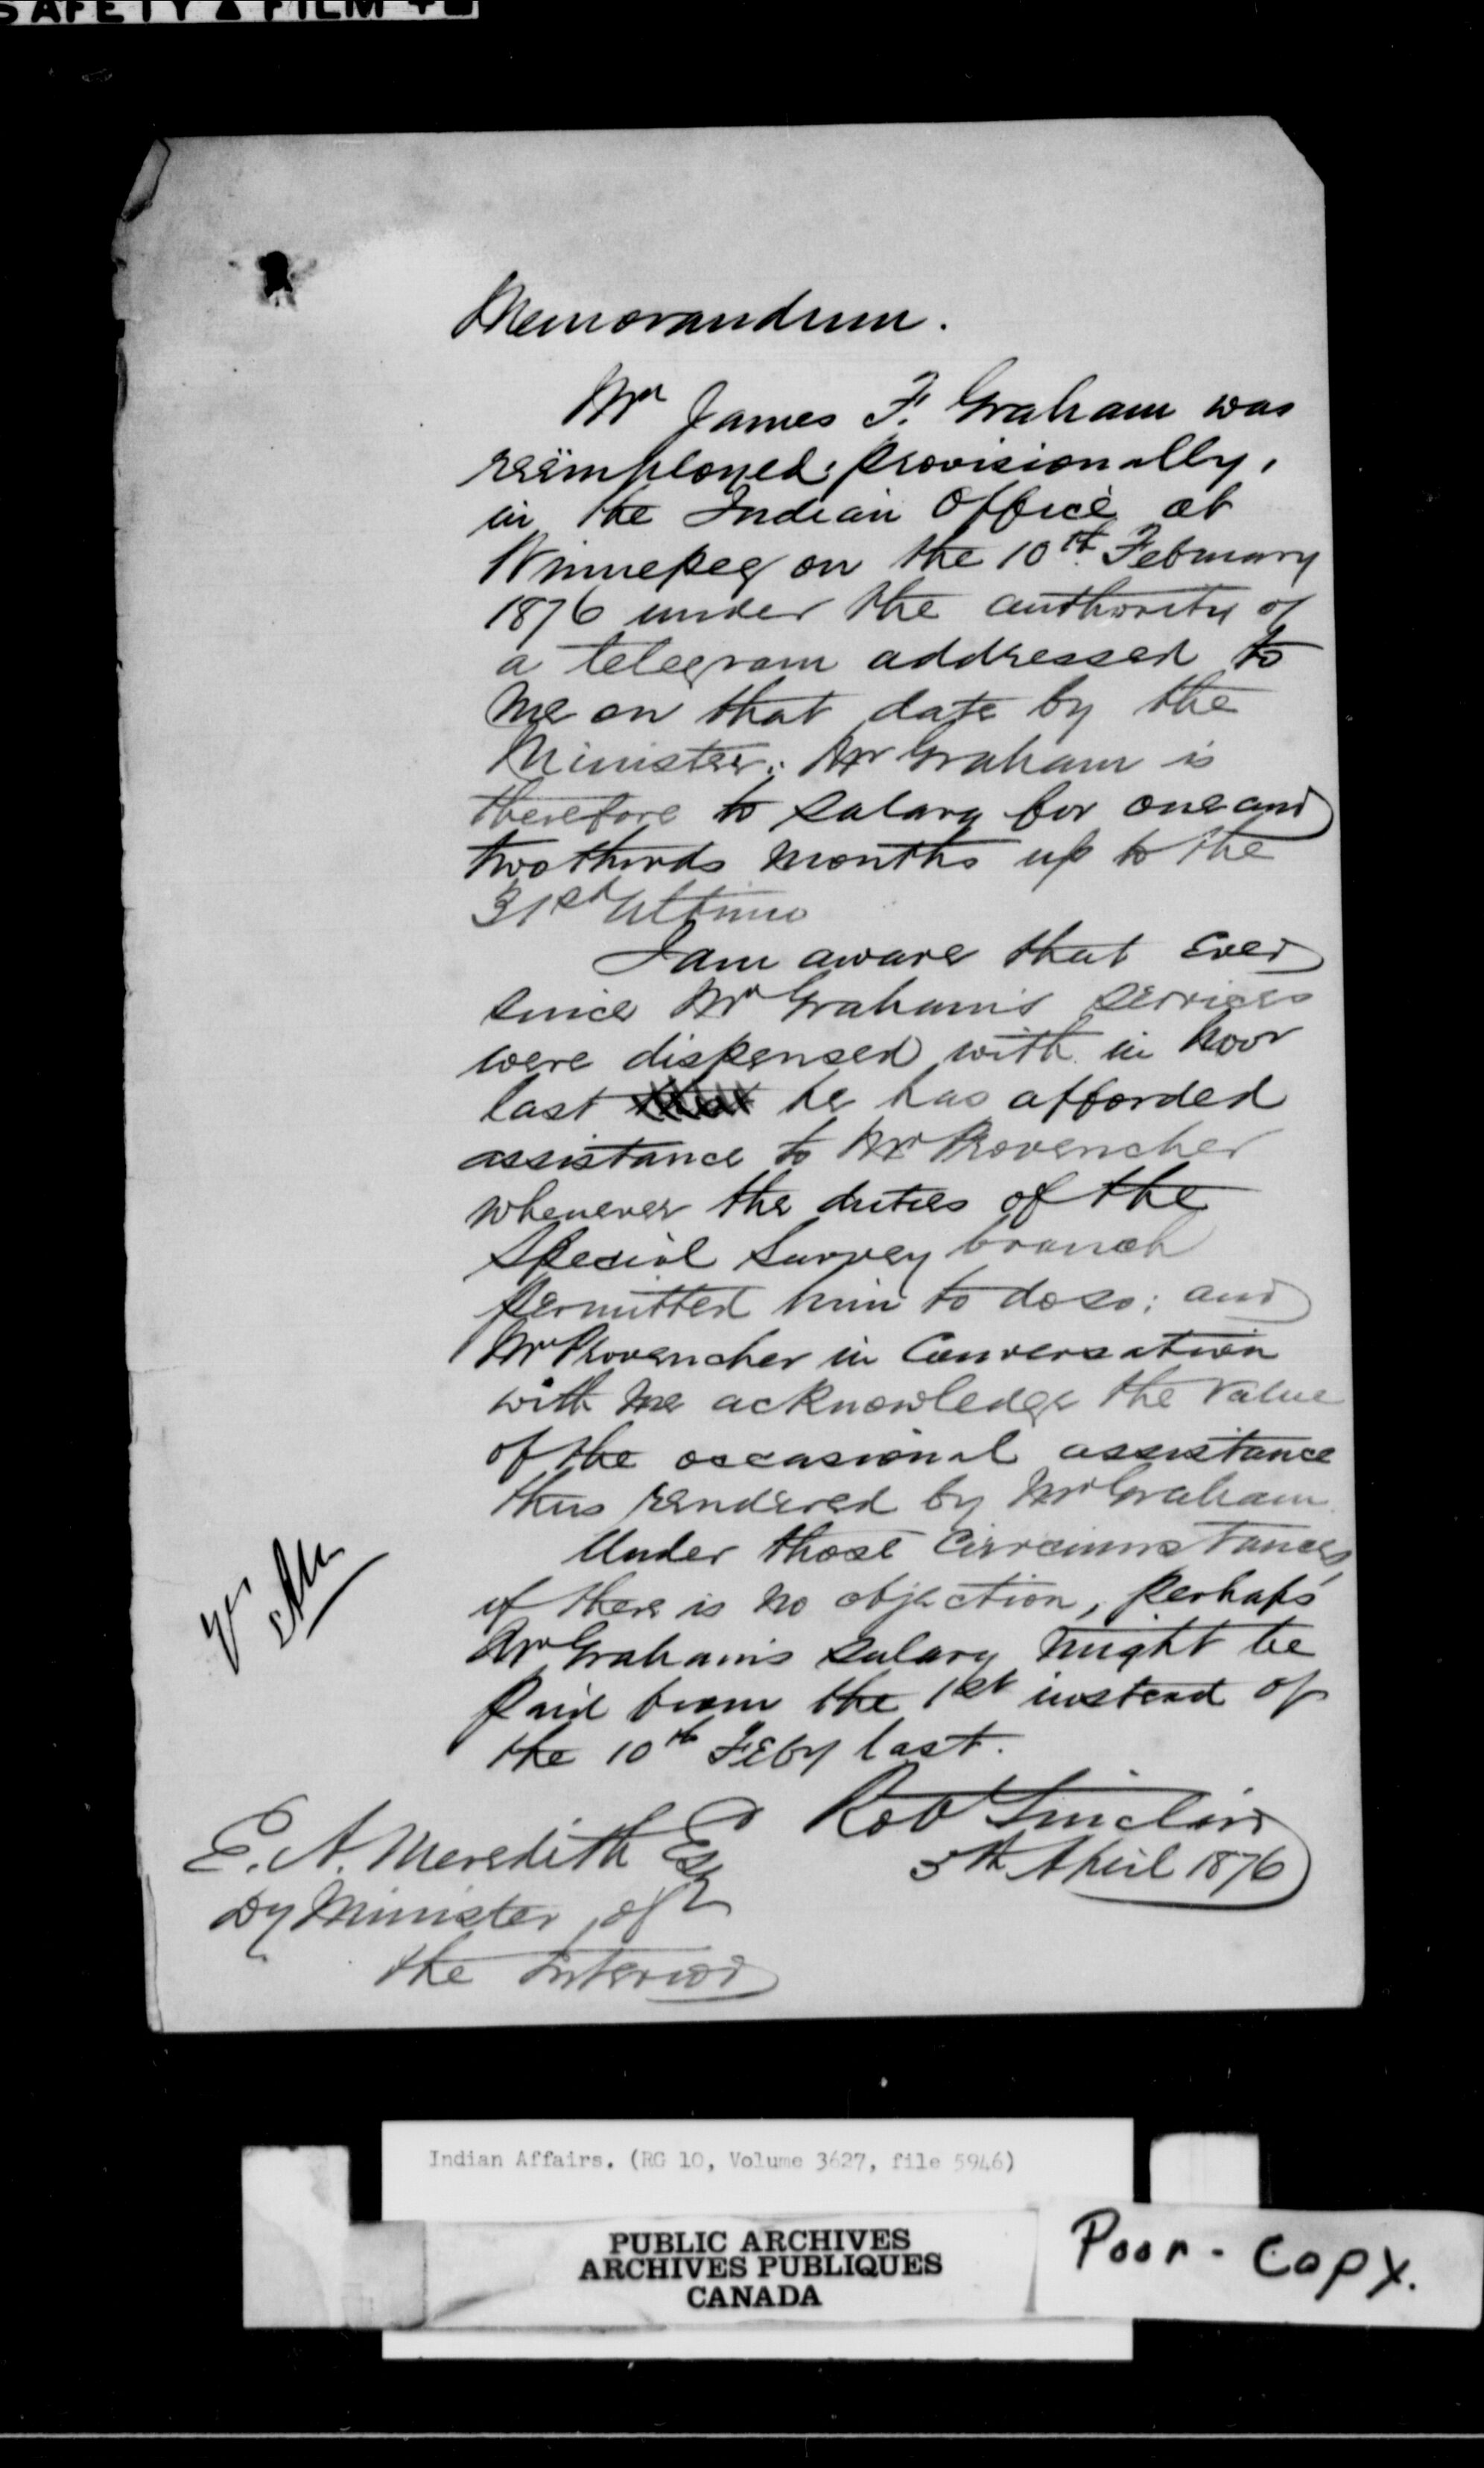 SAFETY ▲ FILM
Memorandum.
Mr James F. Graham was
reëmployed, provisionally,
in the Indian Office at
Winnepeg on the 10th February
1876 under the authority of
a telegram addressed to
me on that date by the
Minister. Mr Graham is
therefore to salary for one and
two thirds months up to the
31st Ultimo
I am aware that ever
since Mr Graham's services
were dispensed with in Novr
last he has afforded
assistance to Mr Provencher
whenever the duties of the
Special Survey branch
permitted him to do so; and
Mr Provencher in Conversation
with me acknowledge the value
of the occasional assistance
thus rendered by Mr Graham
Under those Circumstances,
if there is no objection, perhaps
Mr Graham's salary might be
paid from the 1st instead of
the 10th Feby last.
Rob Sinclair
5th April 1876
E. A. Meredith Esq
Dy Minister of
the Interior
Indian Affairs. (RG 10, Volume 3627, file 5946)
PUBLIC ARCHIVES
ARCHIVES PUBLIQUES
CANADA
Poor - Copy.